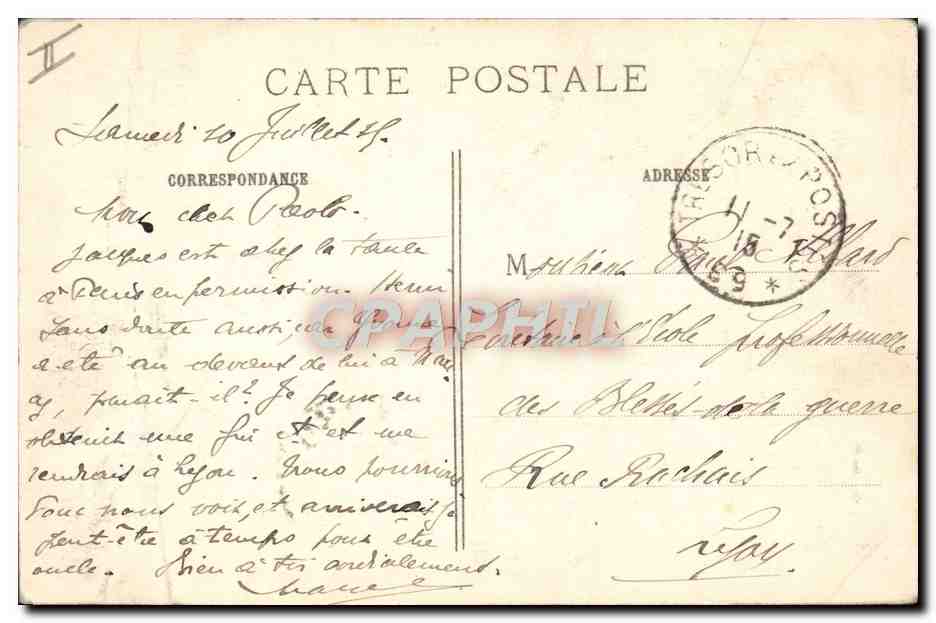 II
CARTE POSTALE
Samedi 10 Juillet 15.
CORRESPONDANCE
Mon cher Paolo.
Jacques est chez la tante
à Paris en permission. Henri
sans doute aussi, car
a été au devant de lui à
paraît-il? Je pense en
obtenir une fin et me
rendrais à Lyon. Nous pourrions
donc nous voir, et arriverais-je
peut-être à temps pour être
oncle. Bien à toi cordialement.
Marcel
ADRESSE
TRESOR ET POSTES
11 -7
15
* 53 *
Monsieur Paul
à l'École professionnelle
des Blessés de la guerre
Rue Rachais
Lyon
CPAPHIL